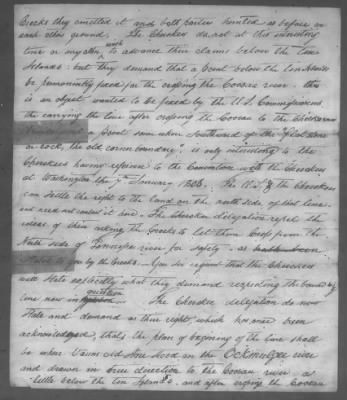 Creeks they omitted it and both parties hunted as before on
each others ground. The Cherokees do not at this
time or any other wish to advance their claims below the ten
Islands: but they demand that a point below the ten Islands
be permanently fixed for the crossing the Coosau river. this
is an object wanted to be fixed by the U.S. Commissioners
the carrying the line after crossing the Coosau to the Chickasaw
a point some where Southward of the Flat Stone
or rock, the old corner boundary, is only interesting to the
Cherokees having reference to the Convention with the Cherokees
at Washington the 7th January 1806. The U.S. & the Cherokees
can settle the right to the land on the north side of that line
and need not contest it now. The Cherokee delegation repel the
idea of their asking the Creeks to let them Come from the
North side of Tennessee river for safety as
to you by the Creeks. You also request that the Cherokees
will State explicitly what they demand respecting the boundary
line now in question. The Cherokee delegation do now
State and demand as their right, which has once been
acknowledged, that the place of beginning of the line shall
be where Vanns old Store stood on the Ockmulgee river
and drawn in true direction to the Coosau river a
little below the ten Islands, and after crossing the Coosau